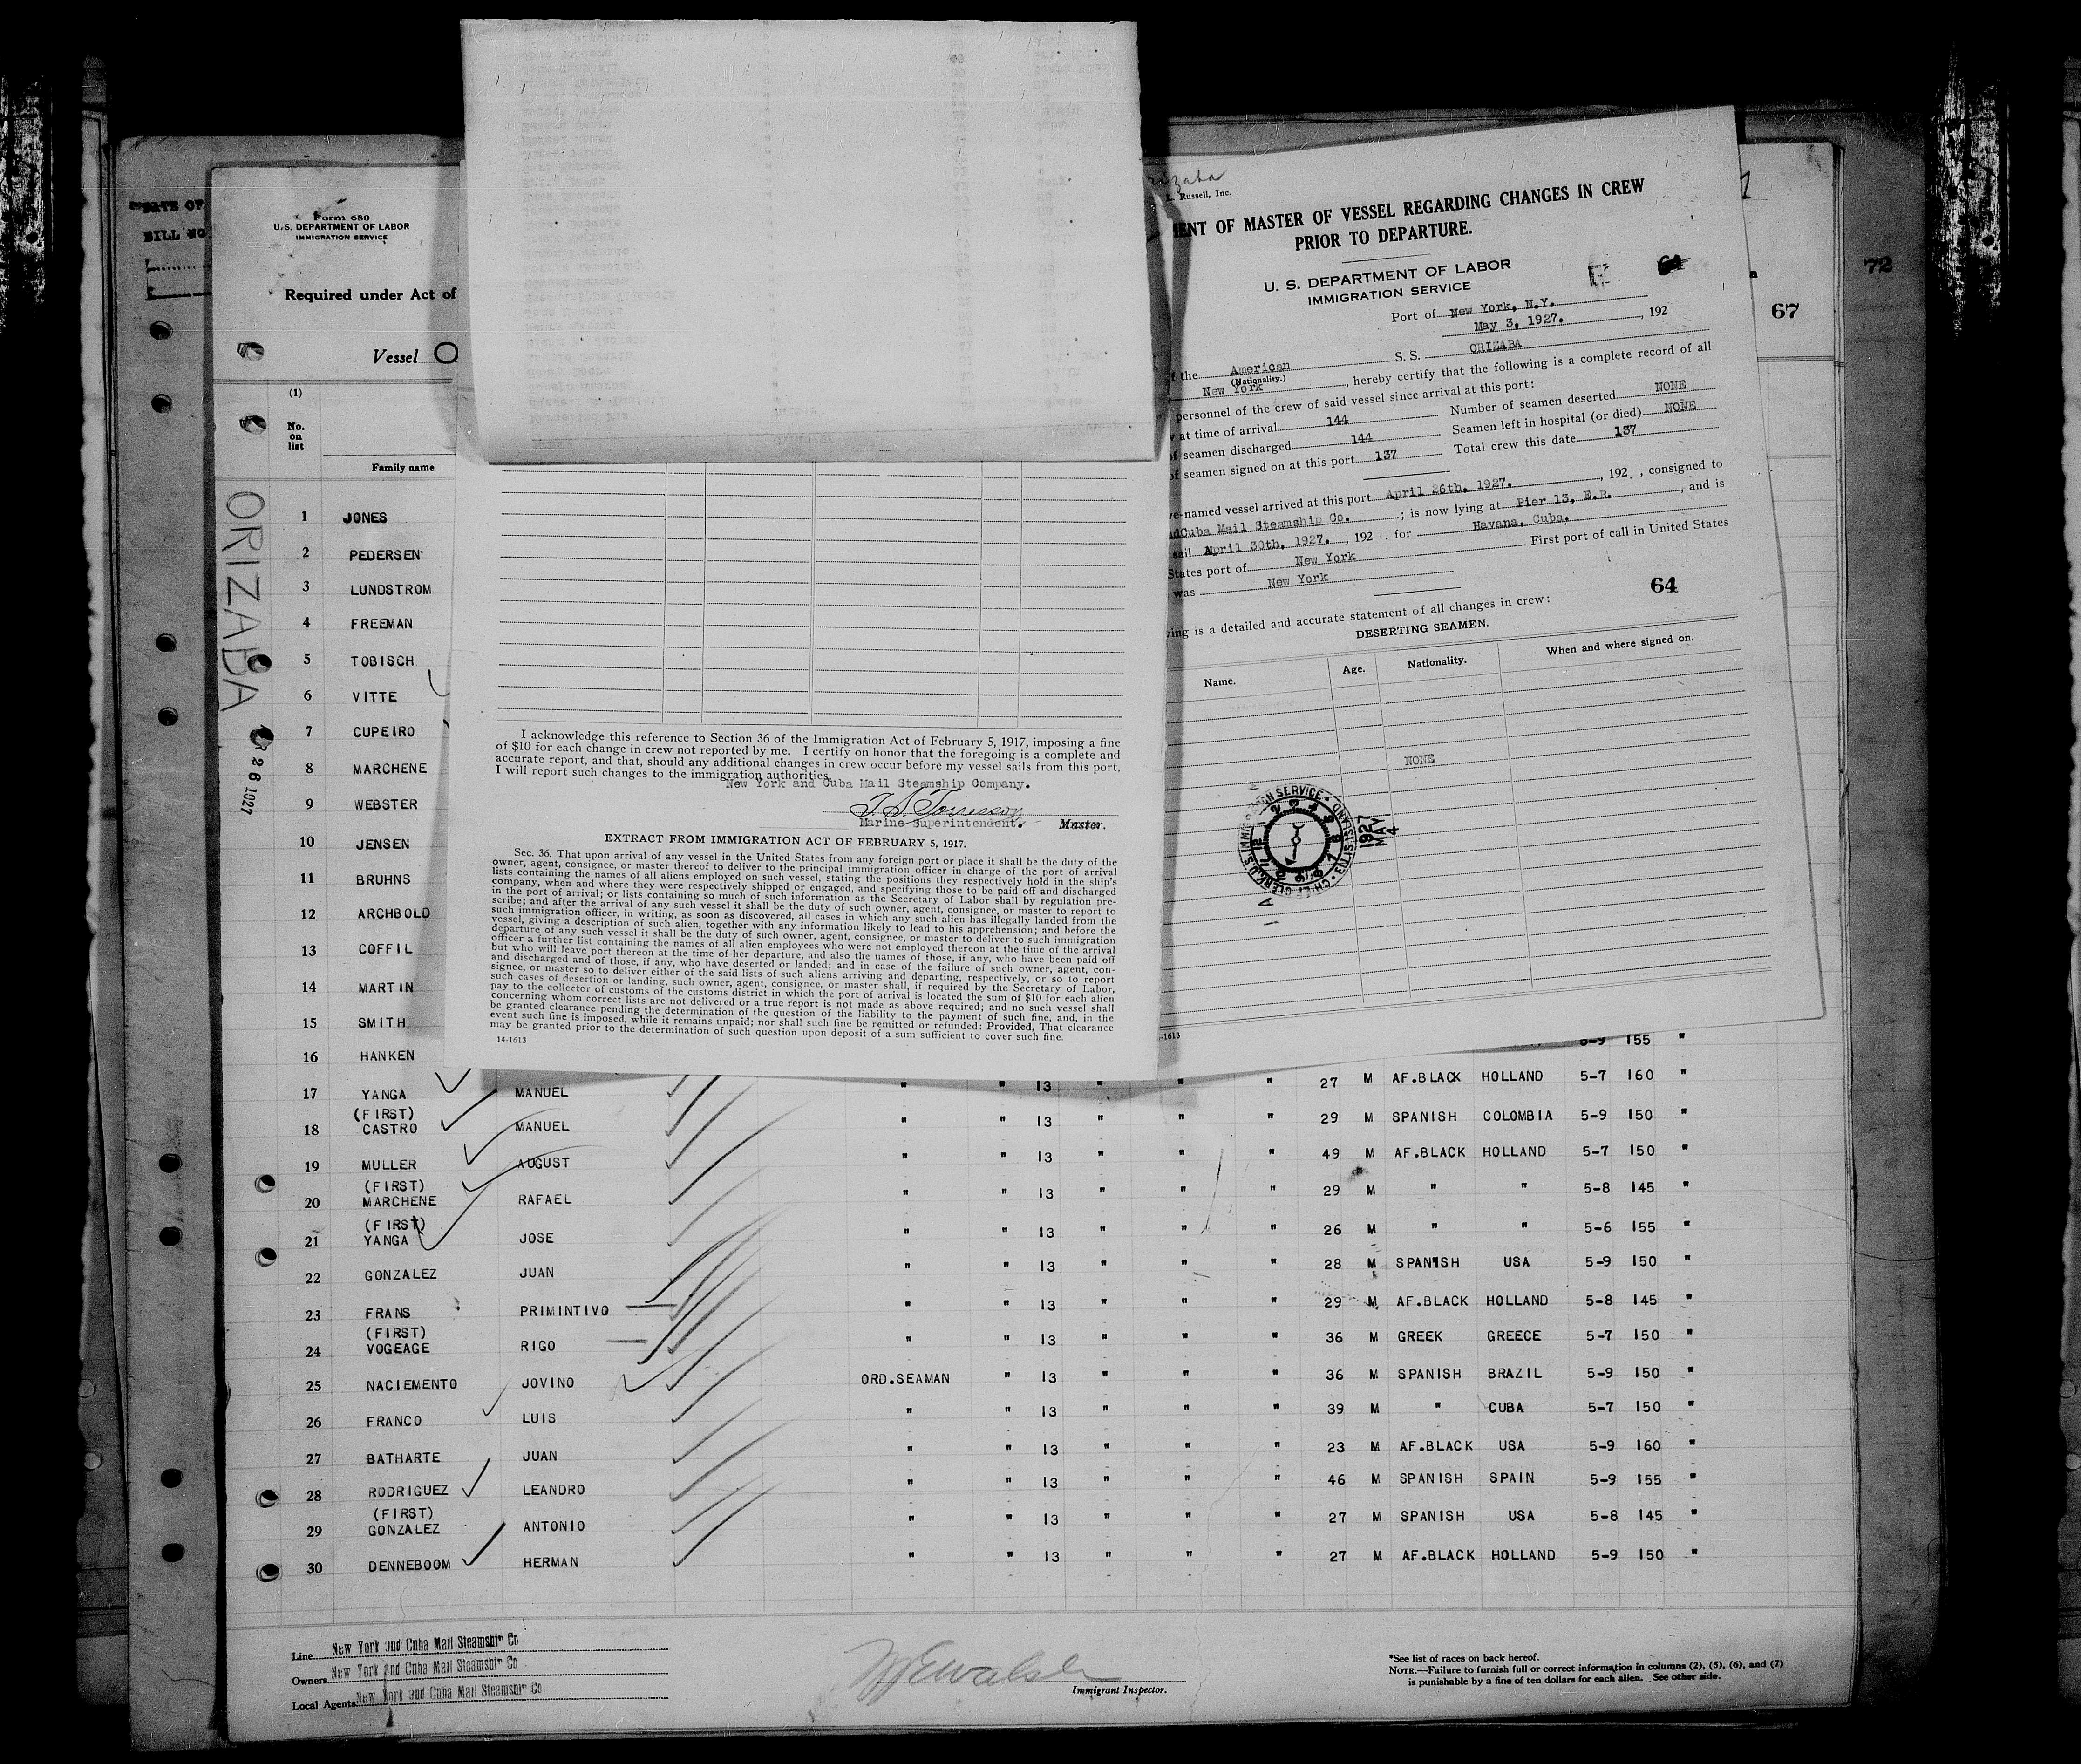 Form 680
U.S. DEPARTMENT OF LABOR
IMMIGRATION SERVICE
Required under Act of
Vessel O
(1)
No.
on
list
Family name
ORIZABA
1 JONES
2 PEDERSEN
3 LUNDSTROM
4 FREEMAN
5 TOBISCH
6 VITTE
7 CUPEIRO
8 MARCHENE
9 WEBSTER
10 JENSEN
11 BRUHNS
12 ARCHBOLD
13 COFFIL
14 MARTIN
15 SMITH
16 HANKEN
I acknowledge this reference to Section 36 of the Immigration Act of February 5, 1917, imposing a fine
of $10 for each change in crew not reported by me. I certify on honor that the foregoing is a complete and
accurate report, and that, should any additional changes in crew occur before my vessel sails from this port,
I will report such changes to the immigration authorities.
New York and Cuba Mail Steamship Company.
Marine Superintendent. Master.
EXTRACT FROM IMMIGRATION ACT OF FEBRUARY 5, 1917.
Sec. 36. That upon arrival of any vessel in the United States from any foreign port or place it shall be the duty of the
owner, agent, consignee, or master thereof to deliver to the principal immigration officer in charge of the port of arrival
lists containing the names of all aliens employed on such vessel, stating the positions they respectively hold in the ship's
company, when and where they were respectively shipped or engaged, and specifying those to be paid off and discharged
in the port of arrival; or lists containing so much of such information as the Secretary of Labor shall by regulation pre-
scribe; and after the arrival of any such vessel it shall be the duty of such owner, agent, consignee, or master to report to
such immigration officer, in writing, as soon as discovered, all cases in which any such alien has illegally landed from the
vessel, giving a description of such alien, together with any information likely to lead to his apprehension; and before the
departure of any such vessel it shall be the duty of such owner, agent, consignee, or master to deliver to such immigration
officer a further list containing the names of all alien employees who were not employed thereon at the time of the arrival
but who will leave port thereon at the time of her departure, and also the names of those, if any, who have been paid off
and discharged and of those, if any, who have deserted or landed; and in case of the failure of such owner, agent, con-
signee, or master so to deliver either of the said lists of such aliens arriving and departing, respectively, or so to report
such cases of desertion or landing, such owner, agent, consignee, or master shall, if required by the Secretary of Labor,
pay to the collector of customs of the customs district in which the port of arrival is located the sum of $10 for each alien
concerning whom correct lists are not delivered or a true report is not made as above required; and no such vessel shall
be granted clearance pending the determination of the question of the liability to the payment of such fine, and, in the
event such fine is imposed, while it remains unpaid; nor shall such fine be remitted or refunded: Provided, That clearance
may be granted prior to the determination of such question upon deposit of a sum sufficient to cover such fine.
14-1613
L. Russell, Inc.
ENT OF MASTER OF VESSEL REGARDING CHANGES IN CREW
PRIOR TO DEPARTURE.
U. S. DEPARTMENT OF LABOR
IMMIGRATION SERVICE
Port of New York, N.Y.
May 3, 1927. , 192
f the American S. S. ORIZABA
(Nationality.)
New York , hereby certify that the following is a complete record of all
personnel of the crew of said vessel since arrival at this port:
at time of arrival 144 Number of seamen deserted NONE
f seamen discharged 144 Seamen left in hospital (or died) NONE
f seamen signed on at this port 137 Total crew this date 137
e-named vessel arrived at this port April 26th. 1927. , 192 , consigned to
Cuba Mail Steamship Co. ; is now lying at Pier 13, E.R. , and is
sail April 30th. 1927. , 192 . for Havana, Cuba.
States port of New York First port of call in United States
was New York
64
ing is a detailed and accurate statement of all changes in crew:
DESERTING SEAMEN.
Name. Age. Nationality. When and where signed on.
NONE
1927
MAY
4
-1613
67
72
5-9 155 "
17 YANGA MANUEL " " 13 " " " 27 M AF.BLACK HOLLAND 5-7 160 "
(FIRST)
18 CASTRO MANUEL " " 13 " " " 29 M SPANISH COLOMBIA 5-9 150 "
19 MULLER AUGUST " " 13 " " " 49 M AF.BLACK HOLLAND 5-7 150 "
(FIRST)
20 MARCHENE RAFAEL " " 13 " " " 29 M " " 5-8 145 "
(FIRST)
21 YANGA JOSE " " 13 " " " 26 M " " 5-6 155 "
22 GONZALEZ JUAN " " 13 " " " 28 M SPANISH USA 5-9 150 "
23 FRANS PRIMINTIVO " " 13 " " " 29 M AF.BLACK HOLLAND 5-8 145 "
(FIRST)
24 VOGEAGE RIGO " " 13 " " " 36 M GREEK GREECE 5-7 150 "
25 NACIEMENTO JOVINO ORD.SEAMAN " 13 " " " 36 M SPANISH BRAZIL 5-9 150 "
26 FRANCO LUIS " " 13 " " " 39 M " CUBA 5-7 150 "
27 BATHARTE JUAN " " 13 " " " 23 M AF.BLACK USA 5-9 160 "
28 RODRIGUEZ LEANDRO " " 13 " " " 46 M SPANISH SPAIN 5-9 155 "
(FIRST)
29 GONZALEZ ANTONIO " " 13 " " " 27 M SPANISH USA 5-8 145 "
30 DENNEBOOM HERMAN " " 13 " " " 27 M AF.BLACK HOLLAND 5-9 150 "
Line New York and Cuba Mail Steamship Co
Owners New York and Cuba Mail Steamship Co
Local Agents New York and Cuba Mail Steamship Co
Immigrant Inspector.
*See list of races on back hereof.
NOTE.—Failure to furnish full or correct information in columns (2), (5), (6), and (7)
is punishable by a fine of ten dollars for each alien. See other side.